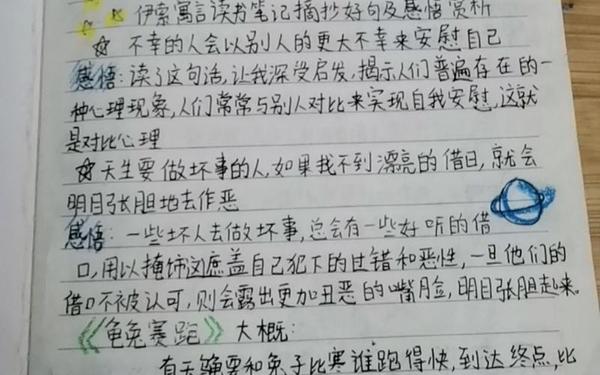 伊索寓言读书笔记摘抄好句及感悟赏析
☆ 不幸的人会以别人的更大不幸来安慰自己
感悟：读了这句话，让我深受启发，揭示人们普遍存在的一
种心理现象，人们常常与别人对比来实现自我安慰，这就
是对比心理
☆天生要做坏事的人，如果找不到漂亮的借口，就会
明目张胆地去作恶
感悟：一些坏人去做坏事，总会有一些好听的借
口，用以掩饰这遮盖自己犯下的过错和恶性，一旦他们的
借口不被认可，则会露出更加丑恶的嘴脸，明目张胆起来。
《龟兔赛跑》大概：
有天龟要和兔子比赛谁跑得快，到达终点，比